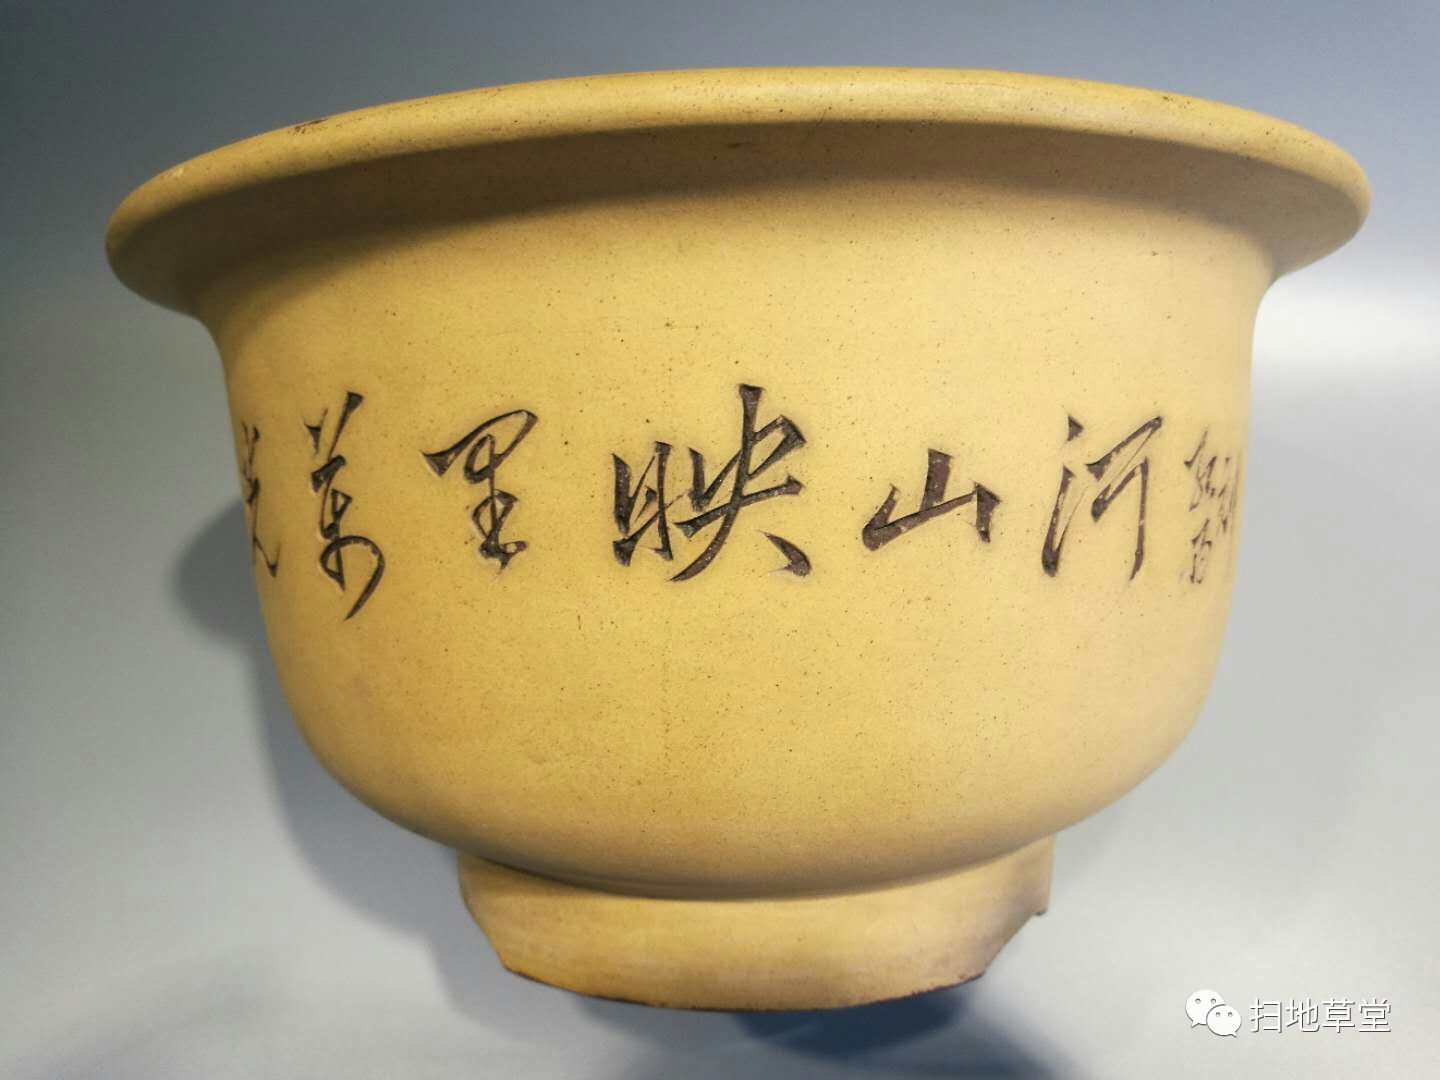 光萬里映山河
扫地草堂